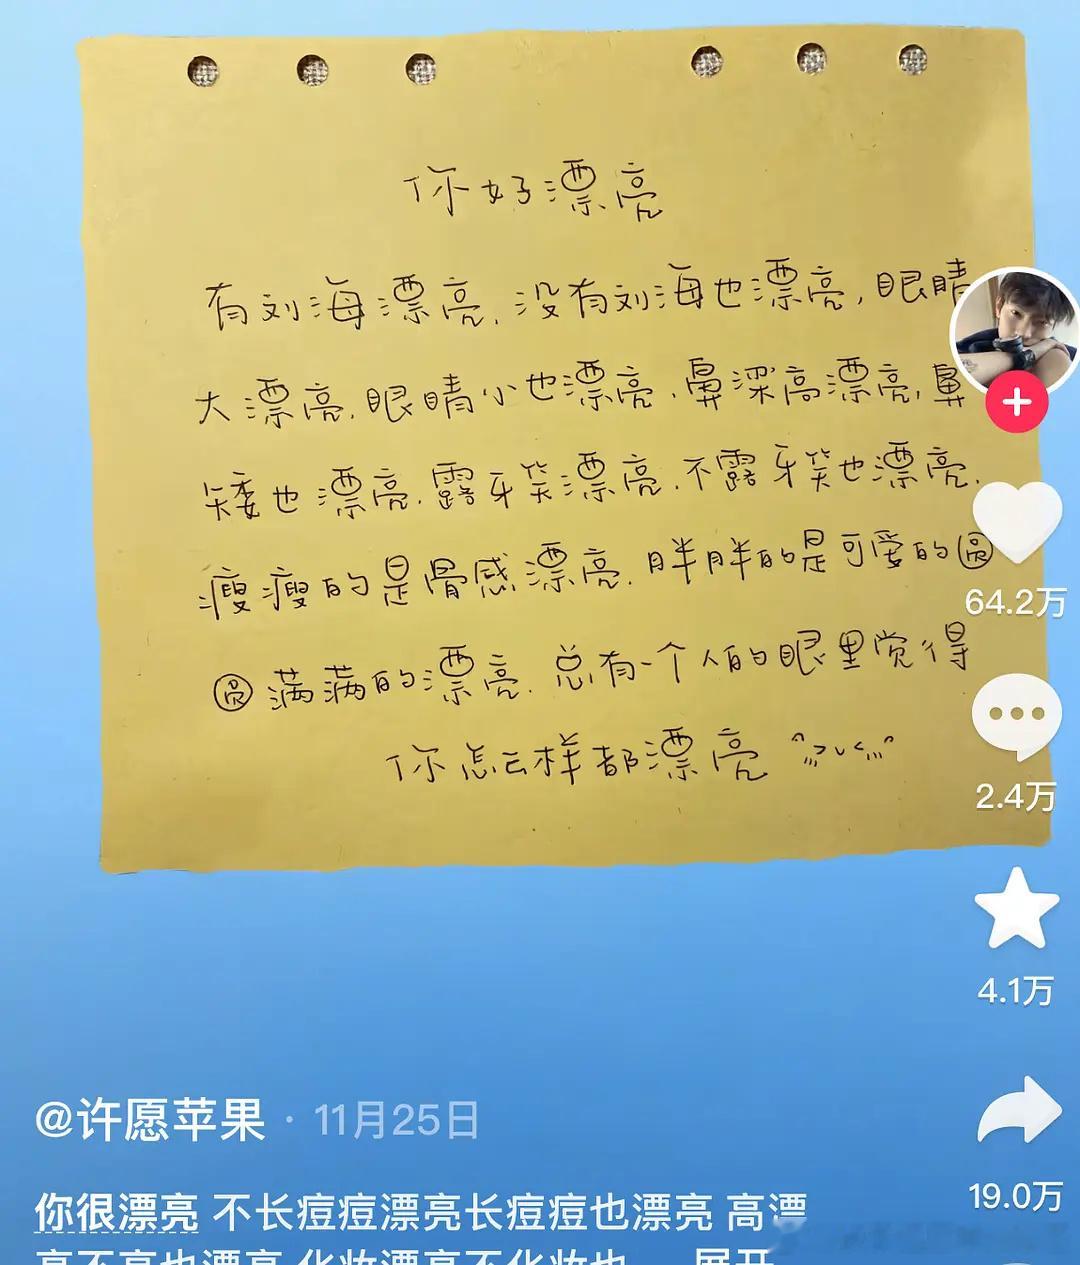 你好漂亮
有刘海漂亮.没有刘海也漂亮,眼睛
大漂亮.眼睛小也漂亮.鼻梁高漂亮,鼻
矮也漂亮.露牙笑漂亮.不露牙笑也漂亮.
瘦瘦的是骨感漂亮.胖胖的是可爱的圆
圆满满的漂亮.总有一个人的眼里觉得
你怎么样都漂亮
64.2万
2.4万
4.1万
19.0万
@许愿苹果 · 11月25日
你很漂亮 不长痘痘漂亮长痘痘也漂亮 高漂
亮不高也漂亮 化妆漂亮不化妆也... 展开